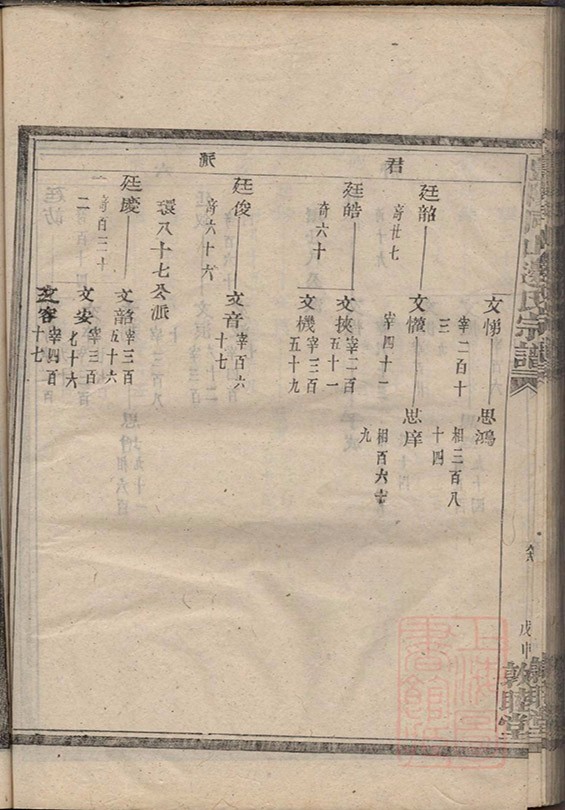 君
派
文悌
宰二百十
三
思鴻
相三百八
十四
廷韶
奇廿七
宰四十一
思庠
相百六十
九
廷皓
奇六十
文挾
宰二百
五十一
文機
宰三百
五十九
廷俊
奇六十六
文音
宰百六
十七
環八十七公派
廷慶
奇百二十
二
文韶
宰三百
五十六
文安
宰三百
七十六
文容
宰四百
十七
氏宗譜
戊申
敦睦堂